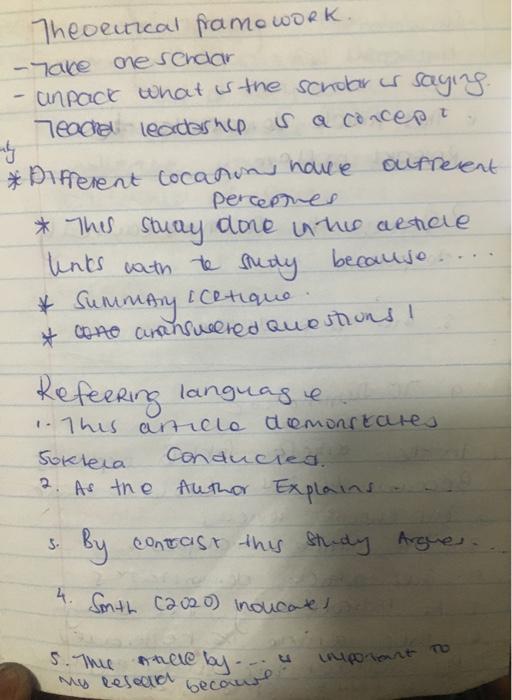 Theoretical framework.
- Take one scholar
- unpack what is the scholar is saying.
Teacher leadership is a concept
* Different locations have different
perceptives
* This study done in this article
links with the study because....
* Summary & critique.
* unanswered questions!
Referring language
1. This article demonstrates
conducted.
2. As the Author Explains....
3. By contrast this study Argues...
4. Smith (2020) indicates
5. This article by.... is important to
my research because